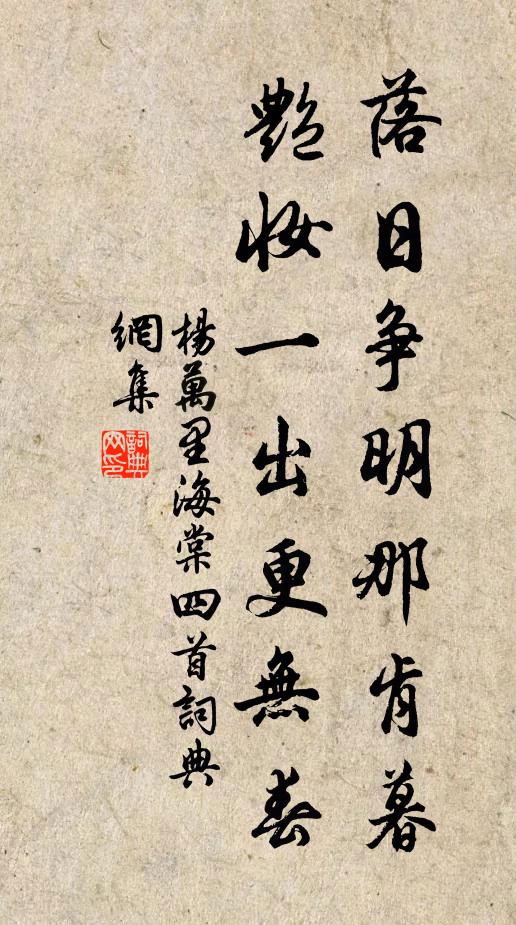 落日争明那肯暮
艶妆一出更無春
楊萬里海棠四首詞典
網集
詞典網印